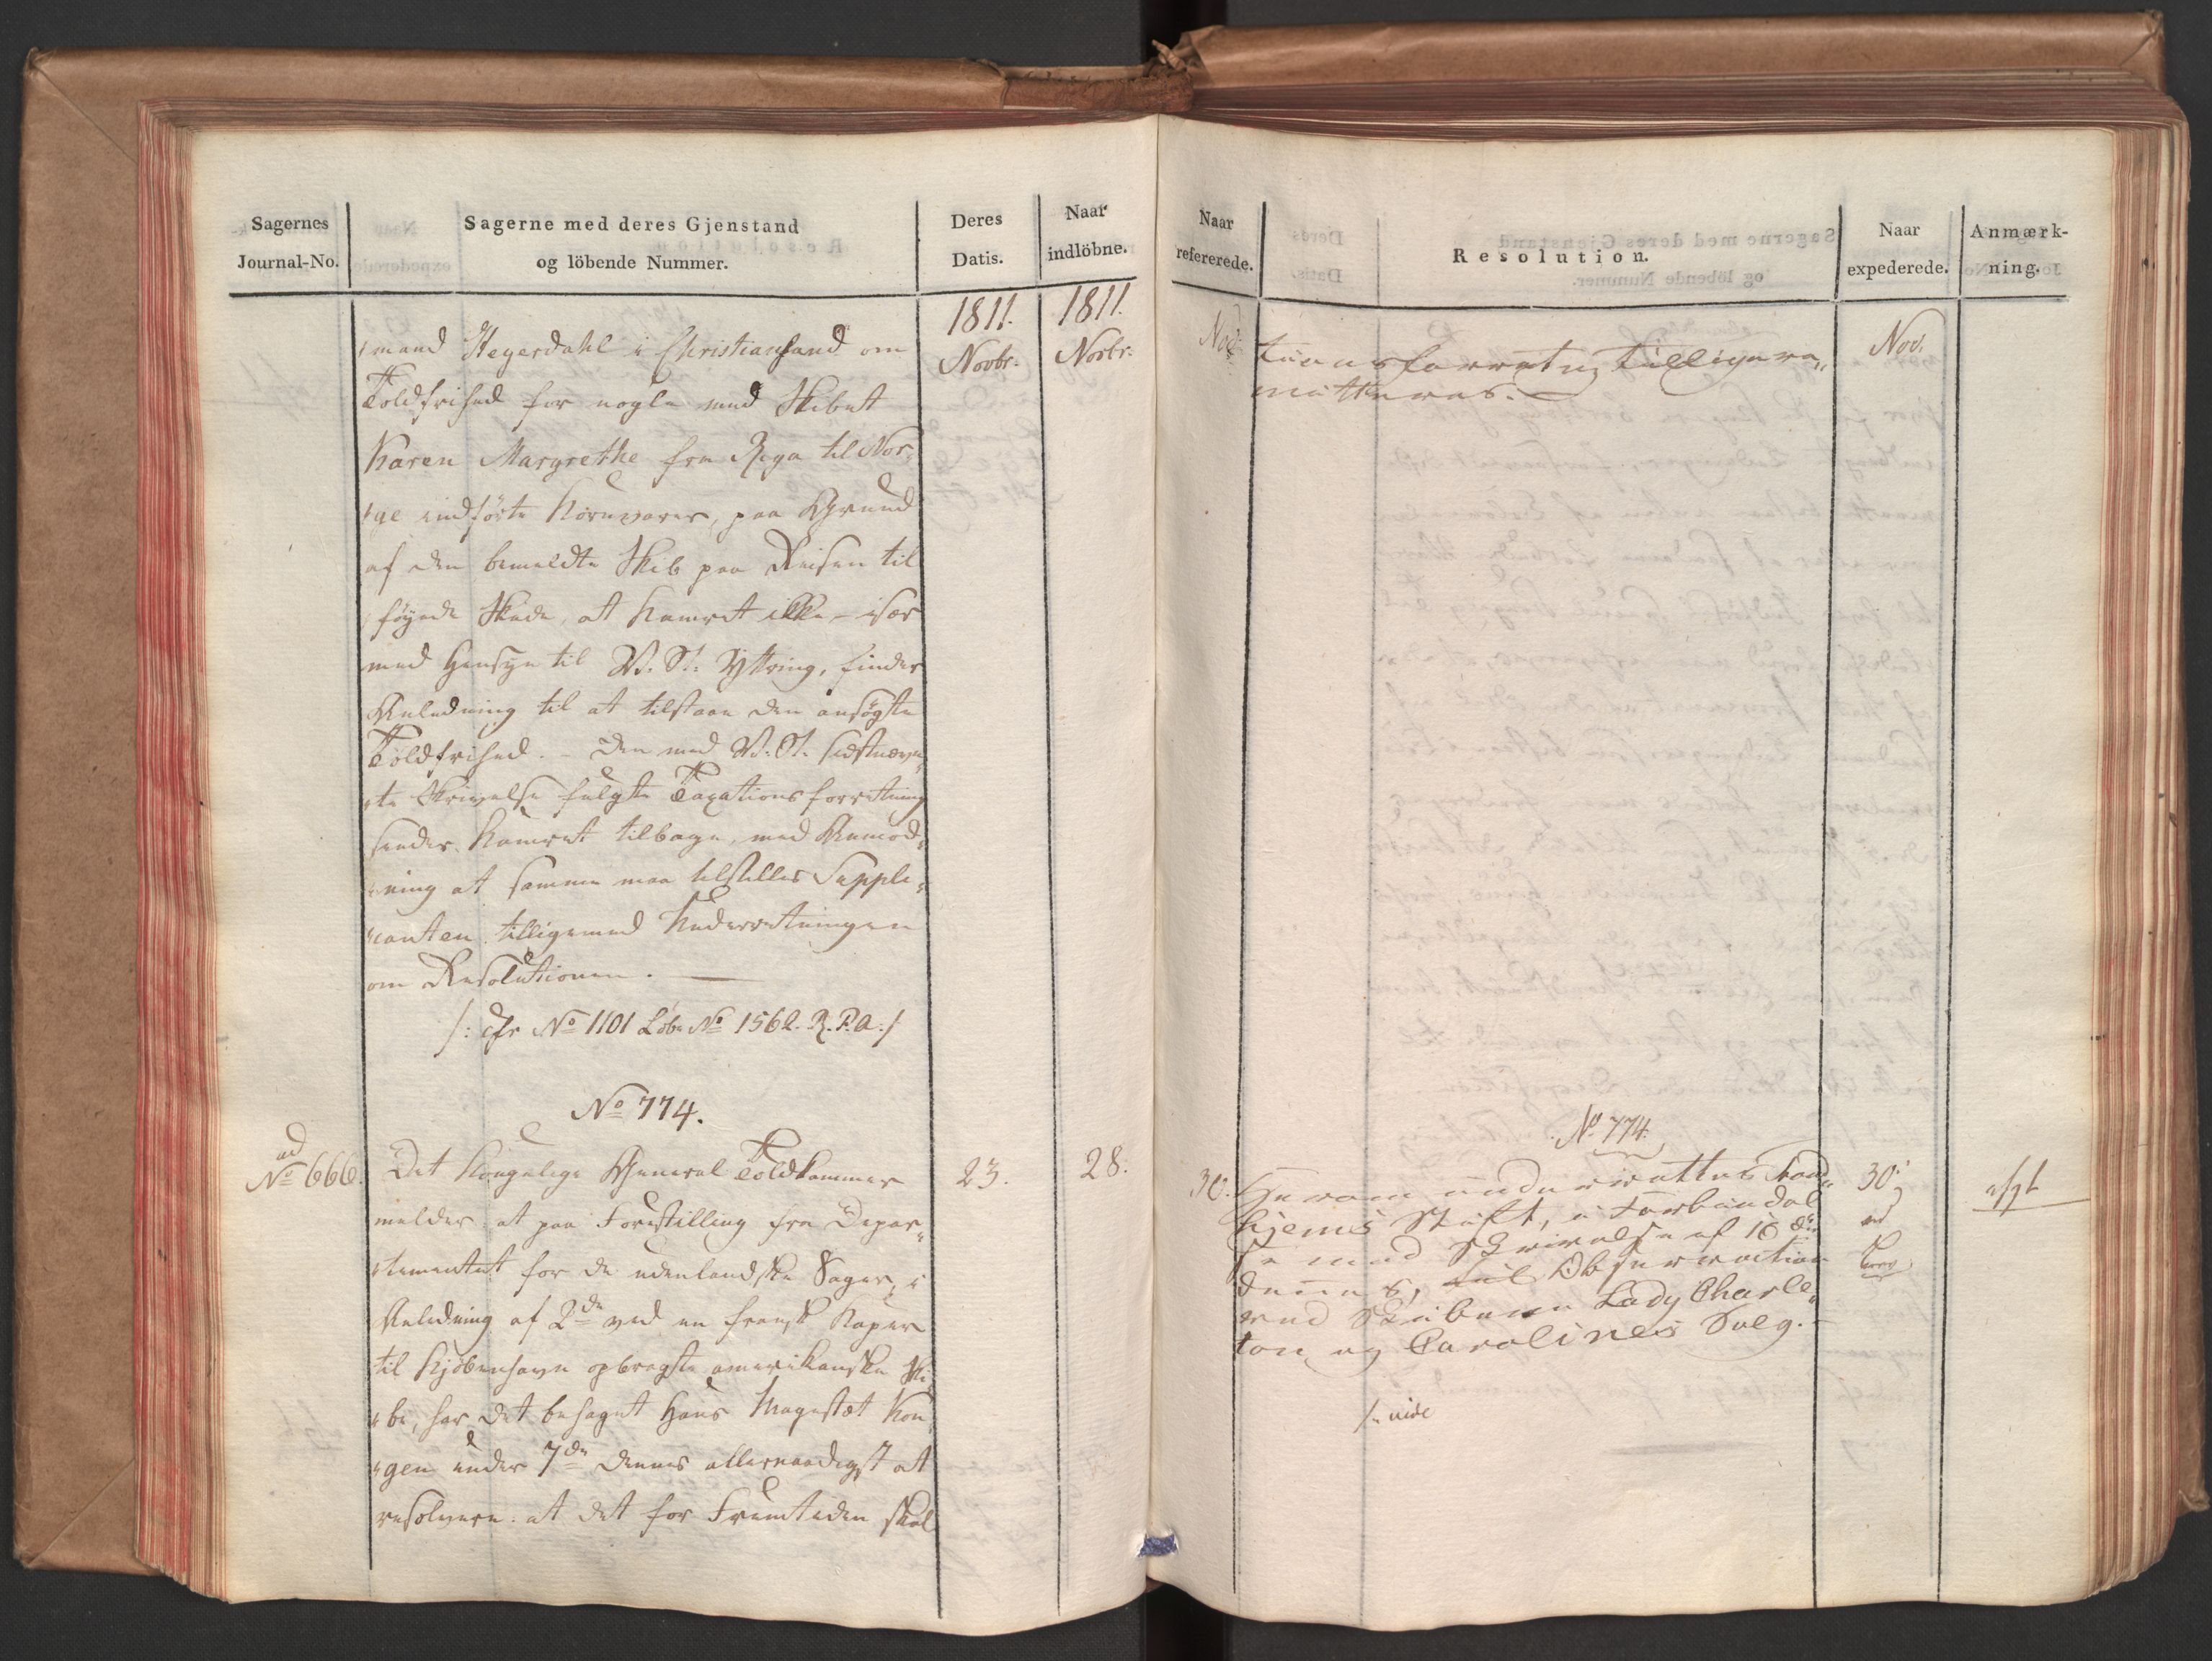 Sagernes
Journal-No.
Sagerne med deres Gjenstand
og löbende Nummer.
Deres
Datis.
Naar
indlöbne.
1811.
Novbr:
1811.
Novbr:
mand Heyerdahl i Christiansand om
Toldfrihed for nogle med Skibet
Karen Margrethe fra Riga til Nor-
ge indførte Kornvarer, paa Grund
af den bemeldte Skib paa Reisen til
føyede Skade, at Kamret ikke – især
med Hensyn til V. St. Yttring, finder
Anledning til at tilstaae den ansøgte
Toldfrihed. – Den med V. St. sidstnævn-
te Skrivelse fulgte Taxationsforretning
sender Kamret tilbage, med Anmod-
ning at samme maa tilstilles Suppli-
canten tilligemed Underretningen
om Resolutionen. —
/: cfr No 1101 Løbe No 1562. R. P. A :/
No 774.
ad
No 666.
Det kongelige General Toldkammer
melder: at paa Forestilling fra Depar-
tementet for de udenlandske Sager, i
Anledning af 2de ved en fransk Kaper
til Kjøbenhavn opbragte amerikanske Ski-
be, har det behaget Hans Majestæt Kon-
gen under 7de dennes allernaadigst at
resolvere: at det for Fremtiden skal
23.
28.
Naar
refererede.
Resolution.
Naar
expederede.
Anmærk-
ning.
Nov:
tionsforretn: tilligemed
matteres. —
Nov.
No 774.
30.
Herom underrettes Trond-
hjems Stift, i Forbindel
se med Skrivelse af 16de
dennes, til Observation
ved Skibene Lady Charle-
ton og Carolines Salg. –
/: vide
30
ad
afgt